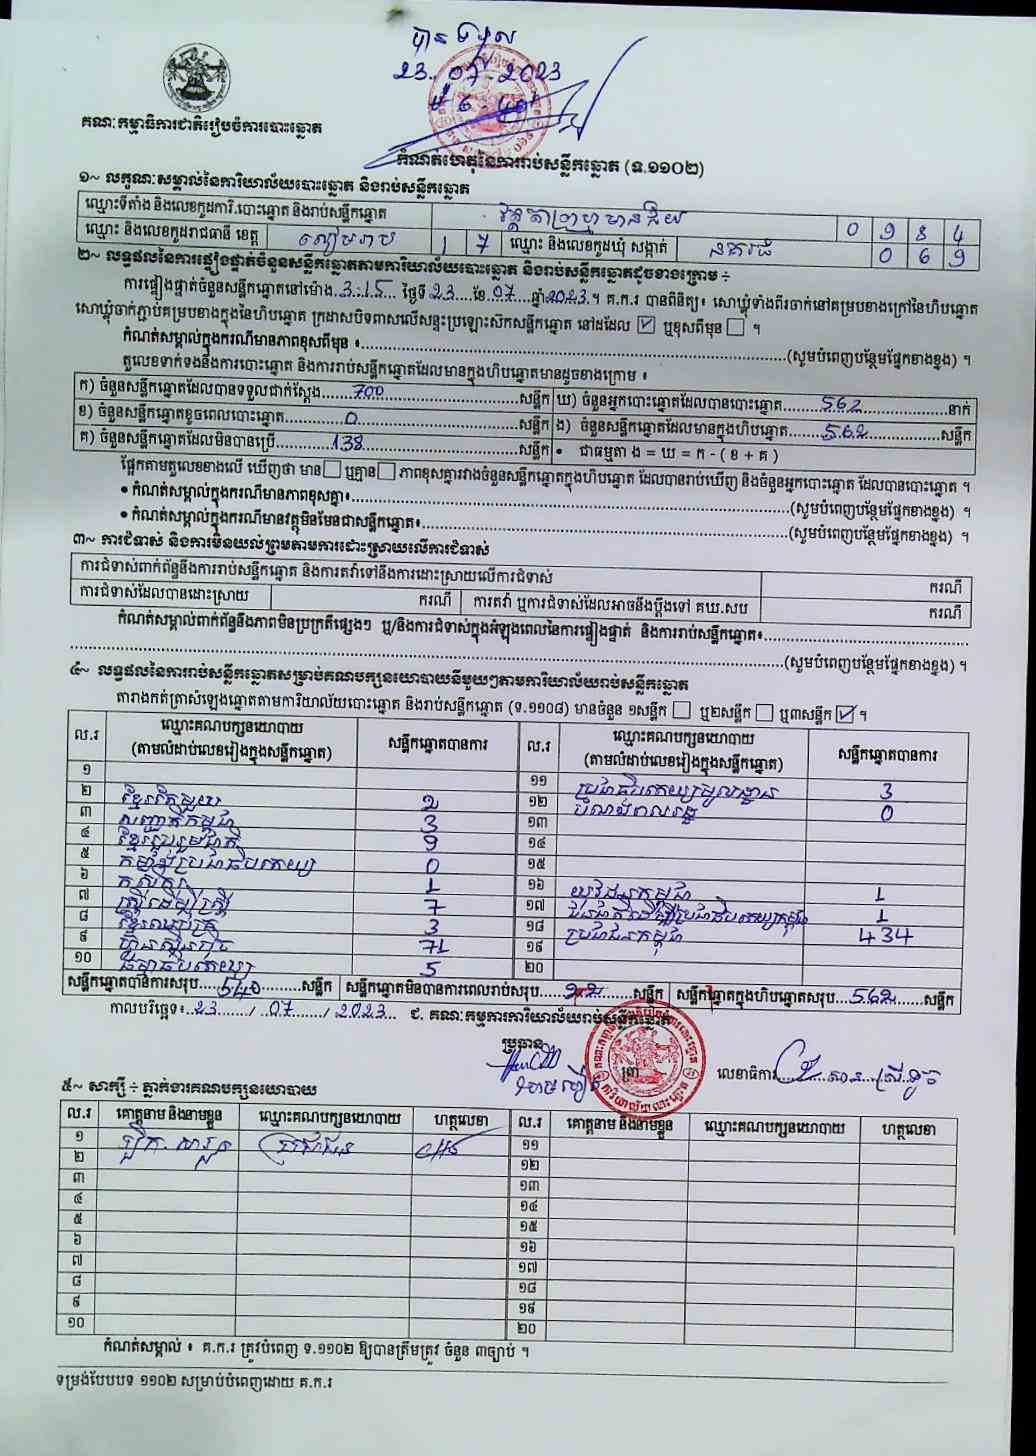 បានទទួល
23.07.2023
គណៈកម្មាធិការជាតិរៀបចំការបោះឆ្នោត
កំណត់ហេតុនៃការរាប់សន្លឹកឆ្នោត (ទ.១១០២)
១~ លក្ខណៈសម្គាល់នៃការិយាល័យបោះឆ្នោត និងរាប់សន្លឹកឆ្នោត
ឈ្មោះទីតាំង និងលេខកូដការិ.បោះឆ្នោត និងរាប់សន្លឹកឆ្នោត 0 9 8 4
ឈ្មោះ និងលេខកូដរាជធានី ខេត្ត សៀមរាប 1 7 ឈ្មោះ និងលេខកូដឃុំ សង្កាត់ នគរធំ 0 6 9
២~ លទ្ធផលនៃការផ្ទៀងផ្ទាត់ចំនួនសន្លឹកឆ្នោតតាមការិយាល័យបោះឆ្នោត និងរាប់សន្លឹកឆ្នោតដូចខាងក្រោម ÷
ការផ្ទៀងផ្ទាត់ចំនួនសន្លឹកឆ្នោតនៅម៉ោង 3:15 ថ្ងៃទី 23 ខែ 07 ឆ្នាំ 2023 ។ គ.ក.រ បានពិនិត្យ៖ សោឃ្លុំទាំងពីរចាក់នៅគម្របខាងក្រៅនៃហិបឆ្នោត
សោឃ្លុំចាក់ភ្ជាប់គម្របខាងក្នុងនៃហិបឆ្នោត ក្រដាសបិទពាសលើសន្ទះប្រឡោះស៊កសន្លឹកឆ្នោត នៅដដែល ☑ ឬខុសពីមុន ☐ ។
កំណត់សម្គាល់ក្នុងករណីមានភាពខុសពីមុន ៖ (សូមបំពេញបន្ថែមផ្នែកខាងខ្នង) ។
តួលេខទាក់ទងនឹងការបោះឆ្នោត និងការរាប់សន្លឹកឆ្នោតដែលមានក្នុងហិបឆ្នោតមានដូចខាងក្រោម ៖
ក) ចំនួនសន្លឹកឆ្នោតដែលបានទទួលជាក់ស្តែង 700 សន្លឹក ឃ) ចំនួនអ្នកបោះឆ្នោតដែលបានបោះឆ្នោត 562 នាក់
ខ) ចំនួនសន្លឹកឆ្នោតខូចពេលបោះឆ្នោត 0 សន្លឹក ង) ចំនួនសន្លឹកឆ្នោតដែលមានក្នុងហិបឆ្នោត 562 សន្លឹក
គ) ចំនួនសន្លឹកឆ្នោតដែលមិនបានប្រើ 138 សន្លឹក • ជាធម្មតា ង = ឃ = ក - ( ខ + គ )
ផ្អែកតាមតួលេខខាងលើ ឃើញថា មាន ☐ ឬគ្មាន ☐ ភាពខុសគ្នារវាងចំនួនសន្លឹកឆ្នោតក្នុងហិបឆ្នោត ដែលបានរាប់ឃើញ និងចំនួនអ្នកបោះឆ្នោត ដែលបានបោះឆ្នោត ។
• កំណត់សម្គាល់ក្នុងករណីមានភាពខុសគ្នា៖ (សូមបំពេញបន្ថែមផ្នែកខាងខ្នង) ។
• កំណត់សម្គាល់ក្នុងករណីមានវត្ថុមិនមែនជាសន្លឹកឆ្នោត៖ (សូមបំពេញបន្ថែមផ្នែកខាងខ្នង) ។
៣~ ការជំទាស់ និងការមិនយល់ព្រមតាមការដោះស្រាយលើការជំទាស់
ការជំទាស់ពាក់ព័ន្ធនឹងការរាប់សន្លឹកឆ្នោត និងការតវ៉ាទៅនឹងការដោះស្រាយលើការជំទាស់ ករណី
ការជំទាស់ដែលបានដោះស្រាយ ករណី ការតវ៉ា ឬការជំទាស់ដែលអាចនឹងប្តឹងទៅ គឃ.សប ករណី
កំណត់សម្គាល់ពាក់ព័ន្ធនឹងភាពមិនប្រក្រតីផ្សេងៗ ឬ/និងការជំទាស់ក្នុងអំឡុងពេលនៃការផ្ទៀងផ្ទាត់ និងការរាប់សន្លឹកឆ្នោត៖
(សូមបំពេញបន្ថែមផ្នែកខាងខ្នង) ។
៤~ លទ្ធផលនៃការរាប់សន្លឹកឆ្នោតសម្រាប់គណបក្សនយោបាយនីមួយៗតាមការិយាល័យរាប់សន្លឹកឆ្នោត
តារាងកត់ត្រាសំឡេងឆ្នោតតាមការិយាល័យបោះឆ្នោត និងរាប់សន្លឹកឆ្នោត (ទ.១១០៨) មានចំនួន ១សន្លឹក ☐ ឬ២សន្លឹក ☐ ឬ៣សន្លឹក ☑ ។
ល.រ ឈ្មោះគណបក្សនយោបាយ (តាមលំដាប់លេខរៀងក្នុងសន្លឹកឆ្នោត) សន្លឹកឆ្នោតបានការ ល.រ ឈ្មោះគណបក្សនយោបាយ (តាមលំដាប់លេខរៀងក្នុងសន្លឹកឆ្នោត) សន្លឹកឆ្នោតបានការ
១ ១១ 3
២ ខ្មែរតែមួយ 2 ១២ 0
៣ សញ្ជាតិកម្ពុជា 3 ១៣
៤ ខ្មែររួបរួមជាតិ 9 ១៤
៥ កម្លាំងប្រជាធិបតេយ្យ 0 ១៥
៦ កសិករ 1 ១៦ យុវជនកម្ពុជា 1
៧ ស្ត្រីដើម្បីស្ត្រី 7 ១៧ 1
៨ 3 ១៨ ប្រជាជនកម្ពុជា 434
៩ ហ៊្វុនស៊ិនប៉ិច 71 ១៩
១០ ធម្មាធិបតេយ្យ 5 ២០
សន្លឹកឆ្នោតបានការសរុប 540 សន្លឹក សន្លឹកឆ្នោតមិនបានការពេលរាប់សរុប 22 សន្លឹក សន្លឹកឆ្នោតក្នុងហិបឆ្នោតសរុប 562 សន្លឹក
កាលបរិច្ឆេទ៖ 23 / 07 / 2023 ជ. គណៈកម្មការការិយាល័យរាប់សន្លឹកឆ្នោត
ប្រធាន
លេខាធិការ
៥~ សាក្សី ÷ ភ្នាក់ងារគណបក្សនយោបាយ
ល.រ គោត្តនាម និងនាមខ្លួន ឈ្មោះគណបក្សនយោបាយ ហត្ថលេខា ល.រ គោត្តនាម និងនាមខ្លួន ឈ្មោះគណបក្សនយោបាយ ហត្ថលេខា
១ ប្រជាជន ១១
២ ១២
៣ ១៣
៤ ១៤
៥ ១៥
៦ ១៦
៧ ១៧
៨ ១៨
៩ ១៩
១០ ២០
កំណត់សម្គាល់ ៖ គ.ក.រ ត្រូវបំពេញ ទ.១១០២ ឱ្យបានត្រឹមត្រូវ ចំនួន ៣ច្បាប់ ។
ទម្រង់បែបបទ ១១០២ សម្រាប់បំពេញដោយ គ.ក.រ